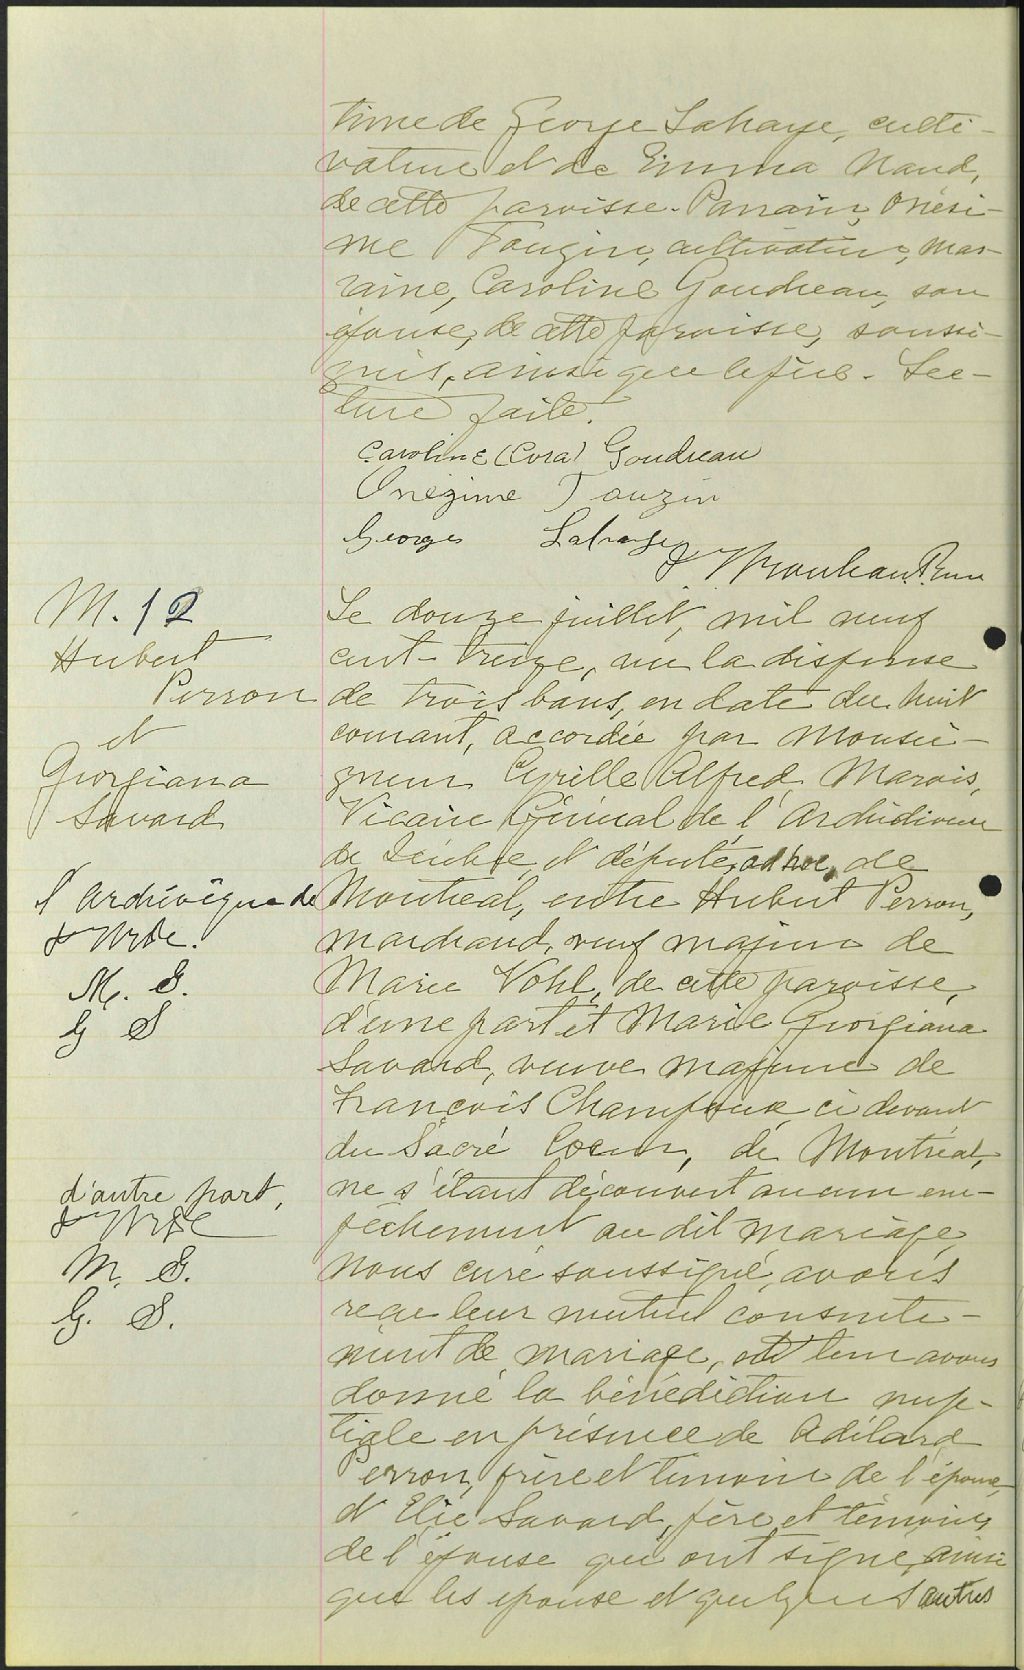 time de George Lahaye, culti-
vateur et de Emma Naud,
de cette paroisse. Parrain, Onési-
me Touzin, cultivateur, mar-
raine, Caroline Goudreau, son
épouse, de cette paroisse, soussi-
gnés, ainsi que le père. Lec-
ture faite.
Caroline (Cora) Goudreau
Onezime Touzin
Georges Lahaye
M. 12
Hubert
Perron
et
Georgiana
Savard
Le douze juillet, mil neuf
cent-treize, vu la dispense
de trois bans, en date du huit
courant, accordée par Monsei-
gneur Cyrille Alfred Marois,
Vicaire Général de l'Archidiocèse
de Québec et député, ad hoc, de
l'Archévêque de
Montréal, entre Hubert Perron,
marchand, veuf majeur de
Marie Vohl, de cette paroisse,
M. S.
G S
d'une part et Marie Georgiana
Savard, veuve majeure de
François Champoux, ci devant
du Sacré Coeur, de Montréal,
d'autre part,
ne s'étant découvert aucun em-
pêchement au dit mariage,
M. S.
G. S.
Nous curé soussigné, avons
reçu leur mutuel consente-
ment de mariage, et leur avons
donné la bénédiction nup-
tiale en présence de Adélard
Perron, frère et témoin de l'époux,
et Elie Savard, père et témoin
de l'épouse qui ont signé, ainsi
que les epouse et quelques autres